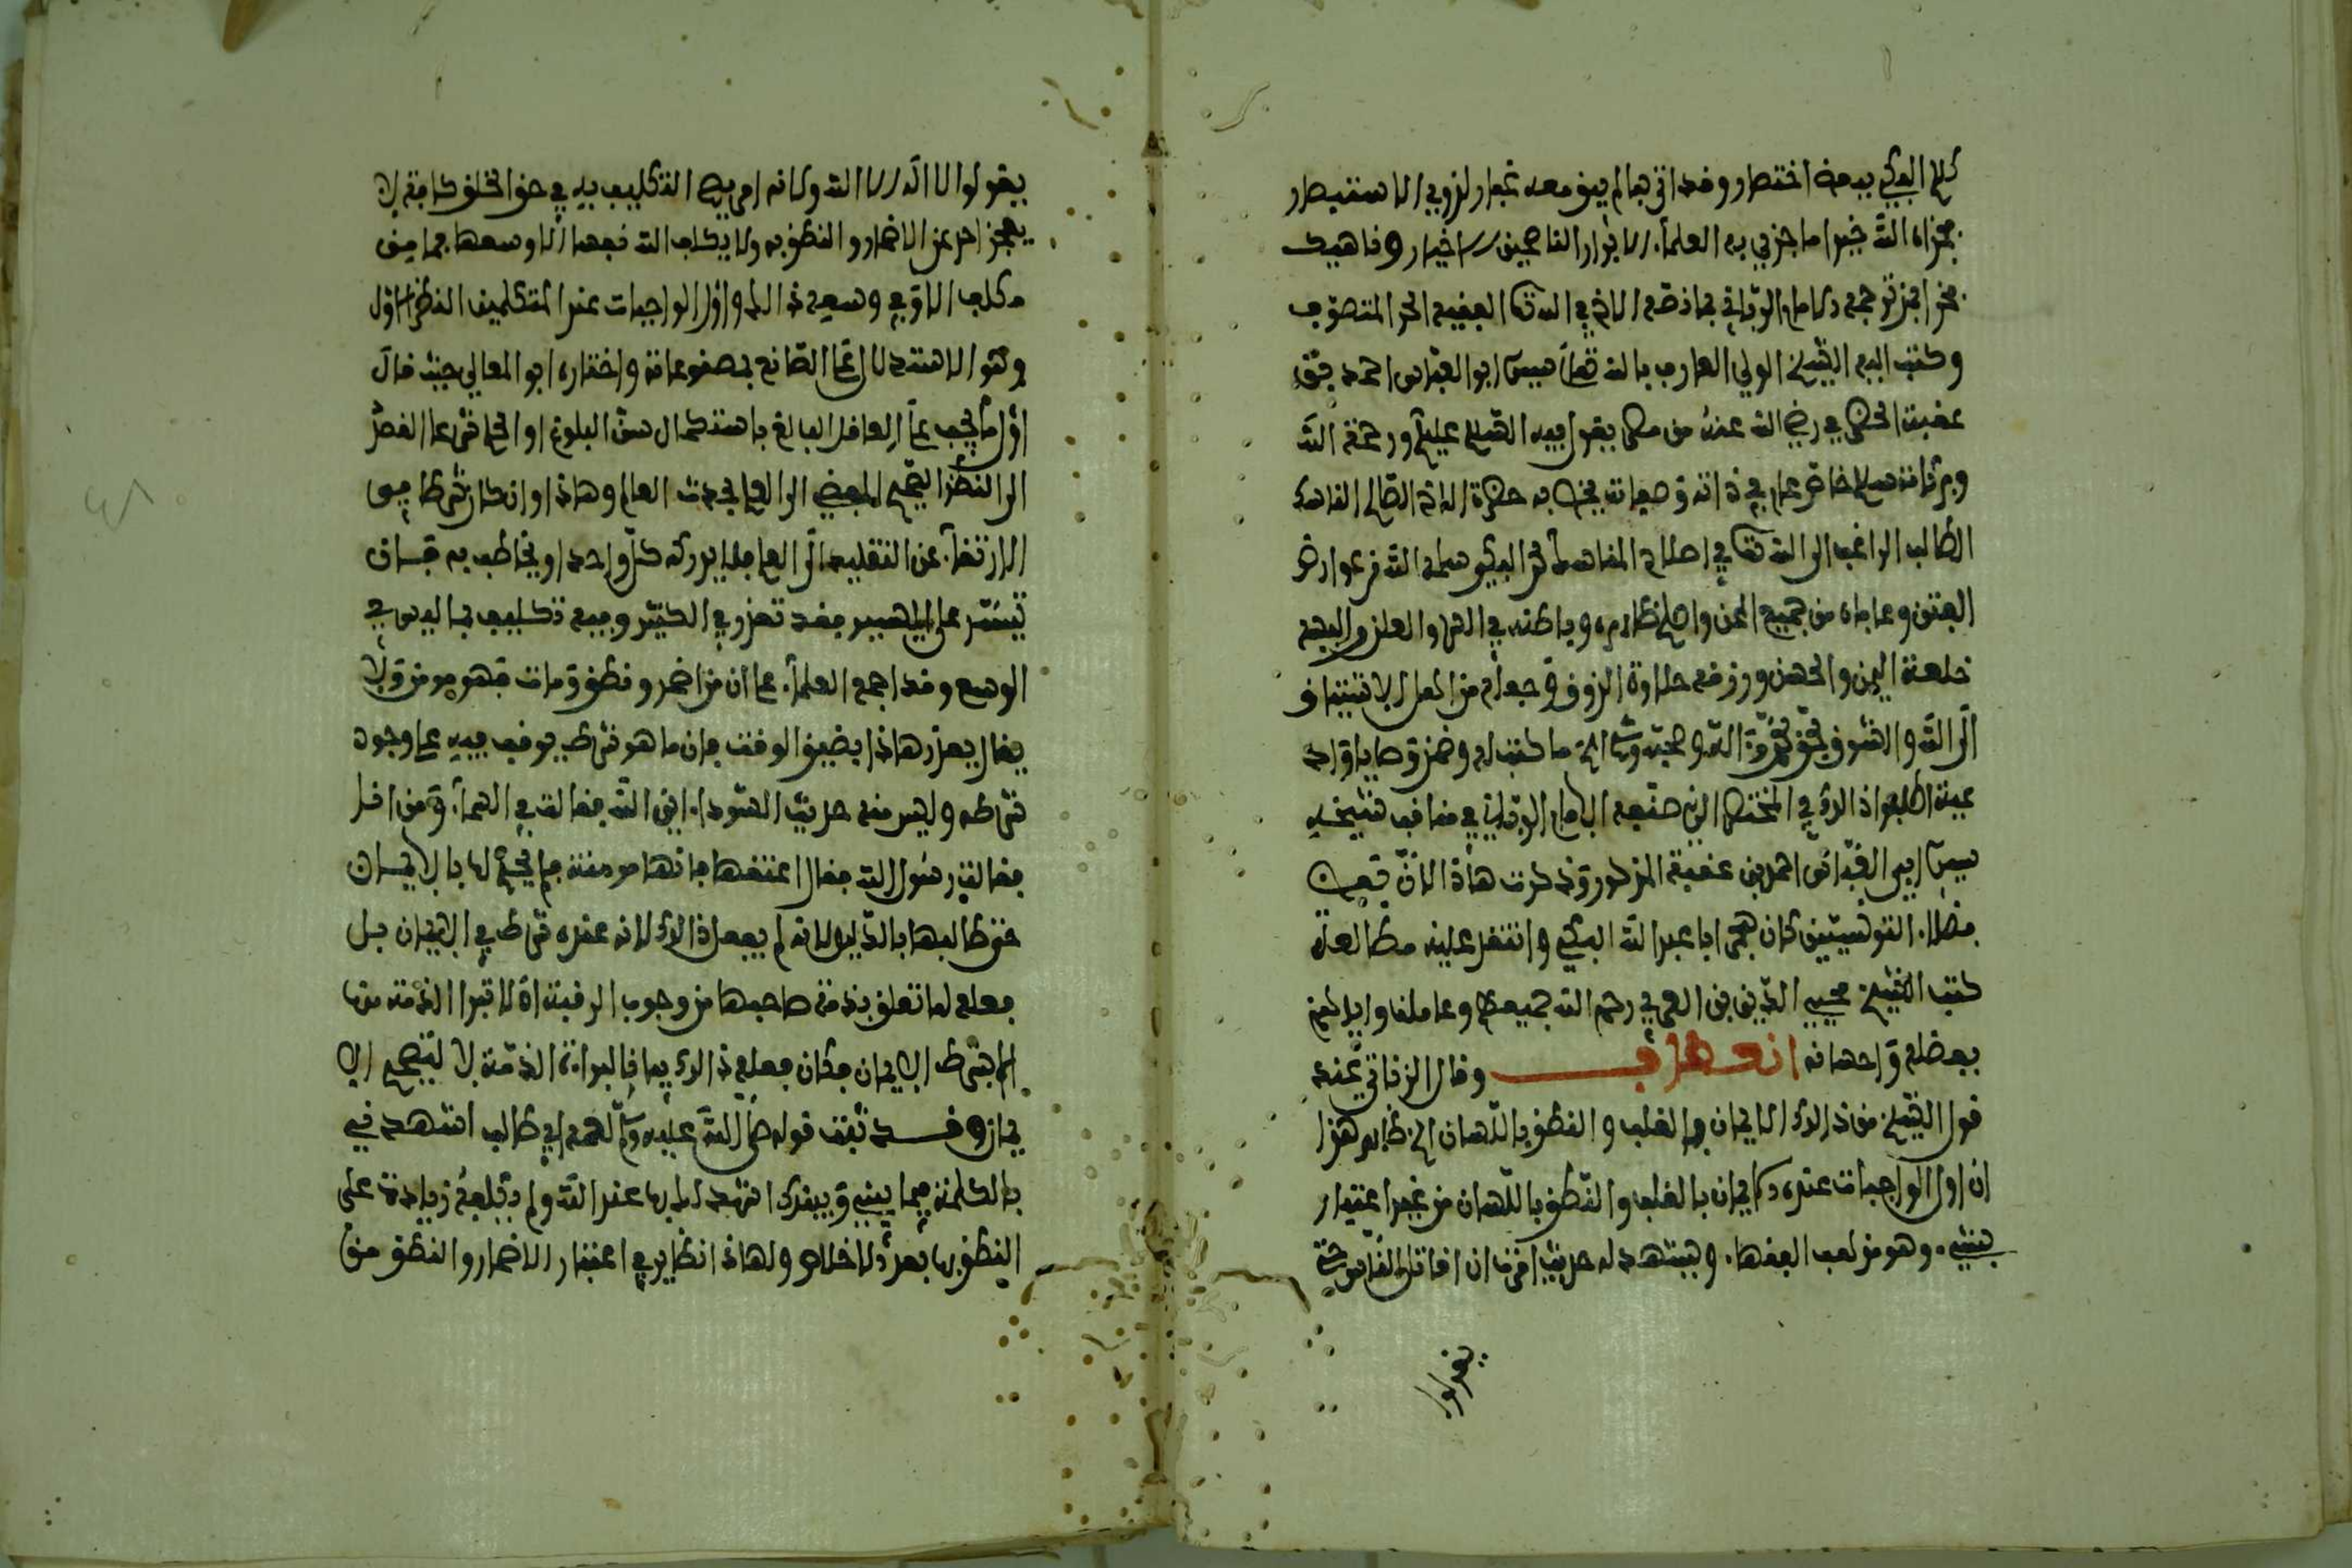 كلام البكي بيد من اختصار وقد اتى بما لم يبق معه تجار لذوي الاستبصار
فجزاه الله خيرا ما جزي به العلماء الابرار الناصحين الاخيار وناهيك
وكتب اليه الشيخ الولي العارف بالله تعلى سيدي ابو العباس احمد بن
عقبة الحضرمي رضي الله عنه من مصر يقول فيه السلام عليكم ورحمة الله
وبركاته سلام خاص عام في ذاته وصفاته يخص به حضرة الصالح الناسك
الطالب الراغب الى الله تعلى في اصلاح المفاسد البكي سلمه الله من عوارض
الفتن وعافاه من جميع المحن واصلح ظاهره وباطنه في السر والعلن والبسه
خلعة اليمن والحسن ورزقه حلاوة الذوق وجعله من اهل الاشتياق
الى الله والشوق بحق حرمة الله ومحبته ما كتب له وضمن وصايا واد
عية اطلع ذلك في المختصر الذي صنعه الامام في مناقب شيخه
سيدي ابي العباس احمد بن عقبة المذكور وقد كرت هذا لان بعض
فضلاء التونسيين كان هجى ابا عبد الله البكي وانتقد عليه مطالعة
كتب الشيخ محيي الدين بن العربي رحم الله جميعهم وعاملنا واياهم
بفضله واحسانه انعطاف وقال الزناتي عند
قول الشيخ من ذلك الايمان بالقلب والنطق باللسان الخ ظاهر هذا
ان اول الواجبات عنده الايمان بالقلب والنطق باللسان من غير اعتبار
شيء وهو مذهب الفقهاء ويشهد له حديث امرت ان اقاتل الناس حتى
يقولوا
يقولوا لا اله الا الله ولانه اصل التكليف به في حق الخلق كافة لا
يعجز احد عن الاضمار والنطق به ولا يكلف الله نفسا الا وسعها فما من
مكلف الا وفي وسعه ذلك واول الواجبات عند المتكلمين النظر الاول
وهو الاستدلال على الصانع بمصنوعاته واختاره ابو المعالي حيث قال
اول ما يجب على العاقل البالغ باستكمال سن البلوغ او الحلم شرعا القصد
الى النظر الصحيح المفضي الى العلم بحدث العالم وهذا وان كان شرطا في
الارتقاء عن التقليد الى العلم فلا يدركه كل واحد او يخاطب به فان
تيسر على اليسير فقد تعذر في الكثير وفيه تكليف بما ليس في
الوسع وقد اجمع العلماء على ان من اضمر ونطق ومات فهو مومن ولا
يقال يعذر هذا بضيق الوقت فان ما هو شرط يوقف فيه على وجود
شرطه وليس منه حديث السوداء اين الله فقالت في السماء ومن انا
فقالت رسول الله فقال اعتقها فانها مومنة فلم يحكم لها بالايمان
حتى طالبها بالدليل لانه لم يفعل ذلك لانه عنده شرط في الايمان بل
فعله لما تعلق بذمة صاحبها من وجوب الرقبة اذ لا تبرا الذمة منها
الا بشرط الايمان فكان فعله ذلك فيها لبراءة الذمة لا لتصحيح الا
يمان وقد ثبت قوله صلى الله عليه وسلم لعمه ابي طالب اشهد في
بالكلمة فيما بيني وبينك اشهد لك بها عند الله ولم يكلفه زيادة على
النطق بها بعد الاخلاص ولهذا نظاير في اعتبار الاضمار والنطق من